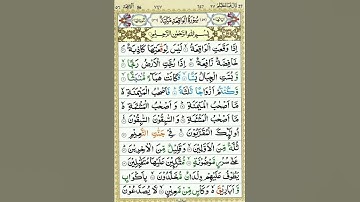 سُوْرَةُ الْوَاقِعَةِ مَكِّيَّةٌ
بِسْمِ اللّٰهِ الرَّحْمٰنِ الرَّحِيْمِ
اِذَا وَقَعَتِ الْوَاقِعَةُ لَيْسَ لِوَقْعَتِهَا كَاذِبَةٌ
خَافِضَةٌ رَّافِعَةٌ اِذَا رُجَّتِ الْاَرْضُ رَجًّا
وَّبُسَّتِ الْجِبَالُ بَسًّا فَكَانَتْ هَبَآءً مُّنْۢبَثًّا
وَّكُنْتُمْ اَزْوَاجًا ثَلٰثَةً فَاَصْحٰبُ الْمَيْمَنَةِ
مَاۤ اَصْحٰبُ الْمَيْمَنَةِ وَاَصْحٰبُ الْمَشْـَٔمَةِ
مَاۤ اَصْحٰبُ الْمَشْـَٔمَةِ وَالسّٰبِقُوْنَ السّٰبِقُوْنَ
اُولٰٓئِكَ الْمُقَرَّبُوْنَ فِيْ جَنّٰتِ النَّعِيْمِ
ثُلَّةٌ مِّنَ الْاَوَّلِيْنَ وَقَلِيْلٌ مِّنَ الْاٰخِرِيْنَ
عَلٰى سُرُرٍ مَّوْضُوْنَةٍ مُّتَّكِـِٕيْنَ عَلَيْهَا مُتَقٰبِلِيْنَ
يَطُوْفُ عَلَيْهِمْ وِلْدَانٌ مُّخَلَّدُوْنَ بِاَكْوَابٍ
وَّاَبَارِيْقَ وَكَاْسٍ مِّنْ مَّعِيْنٍ لَّا يُصَدَّعُوْنَ